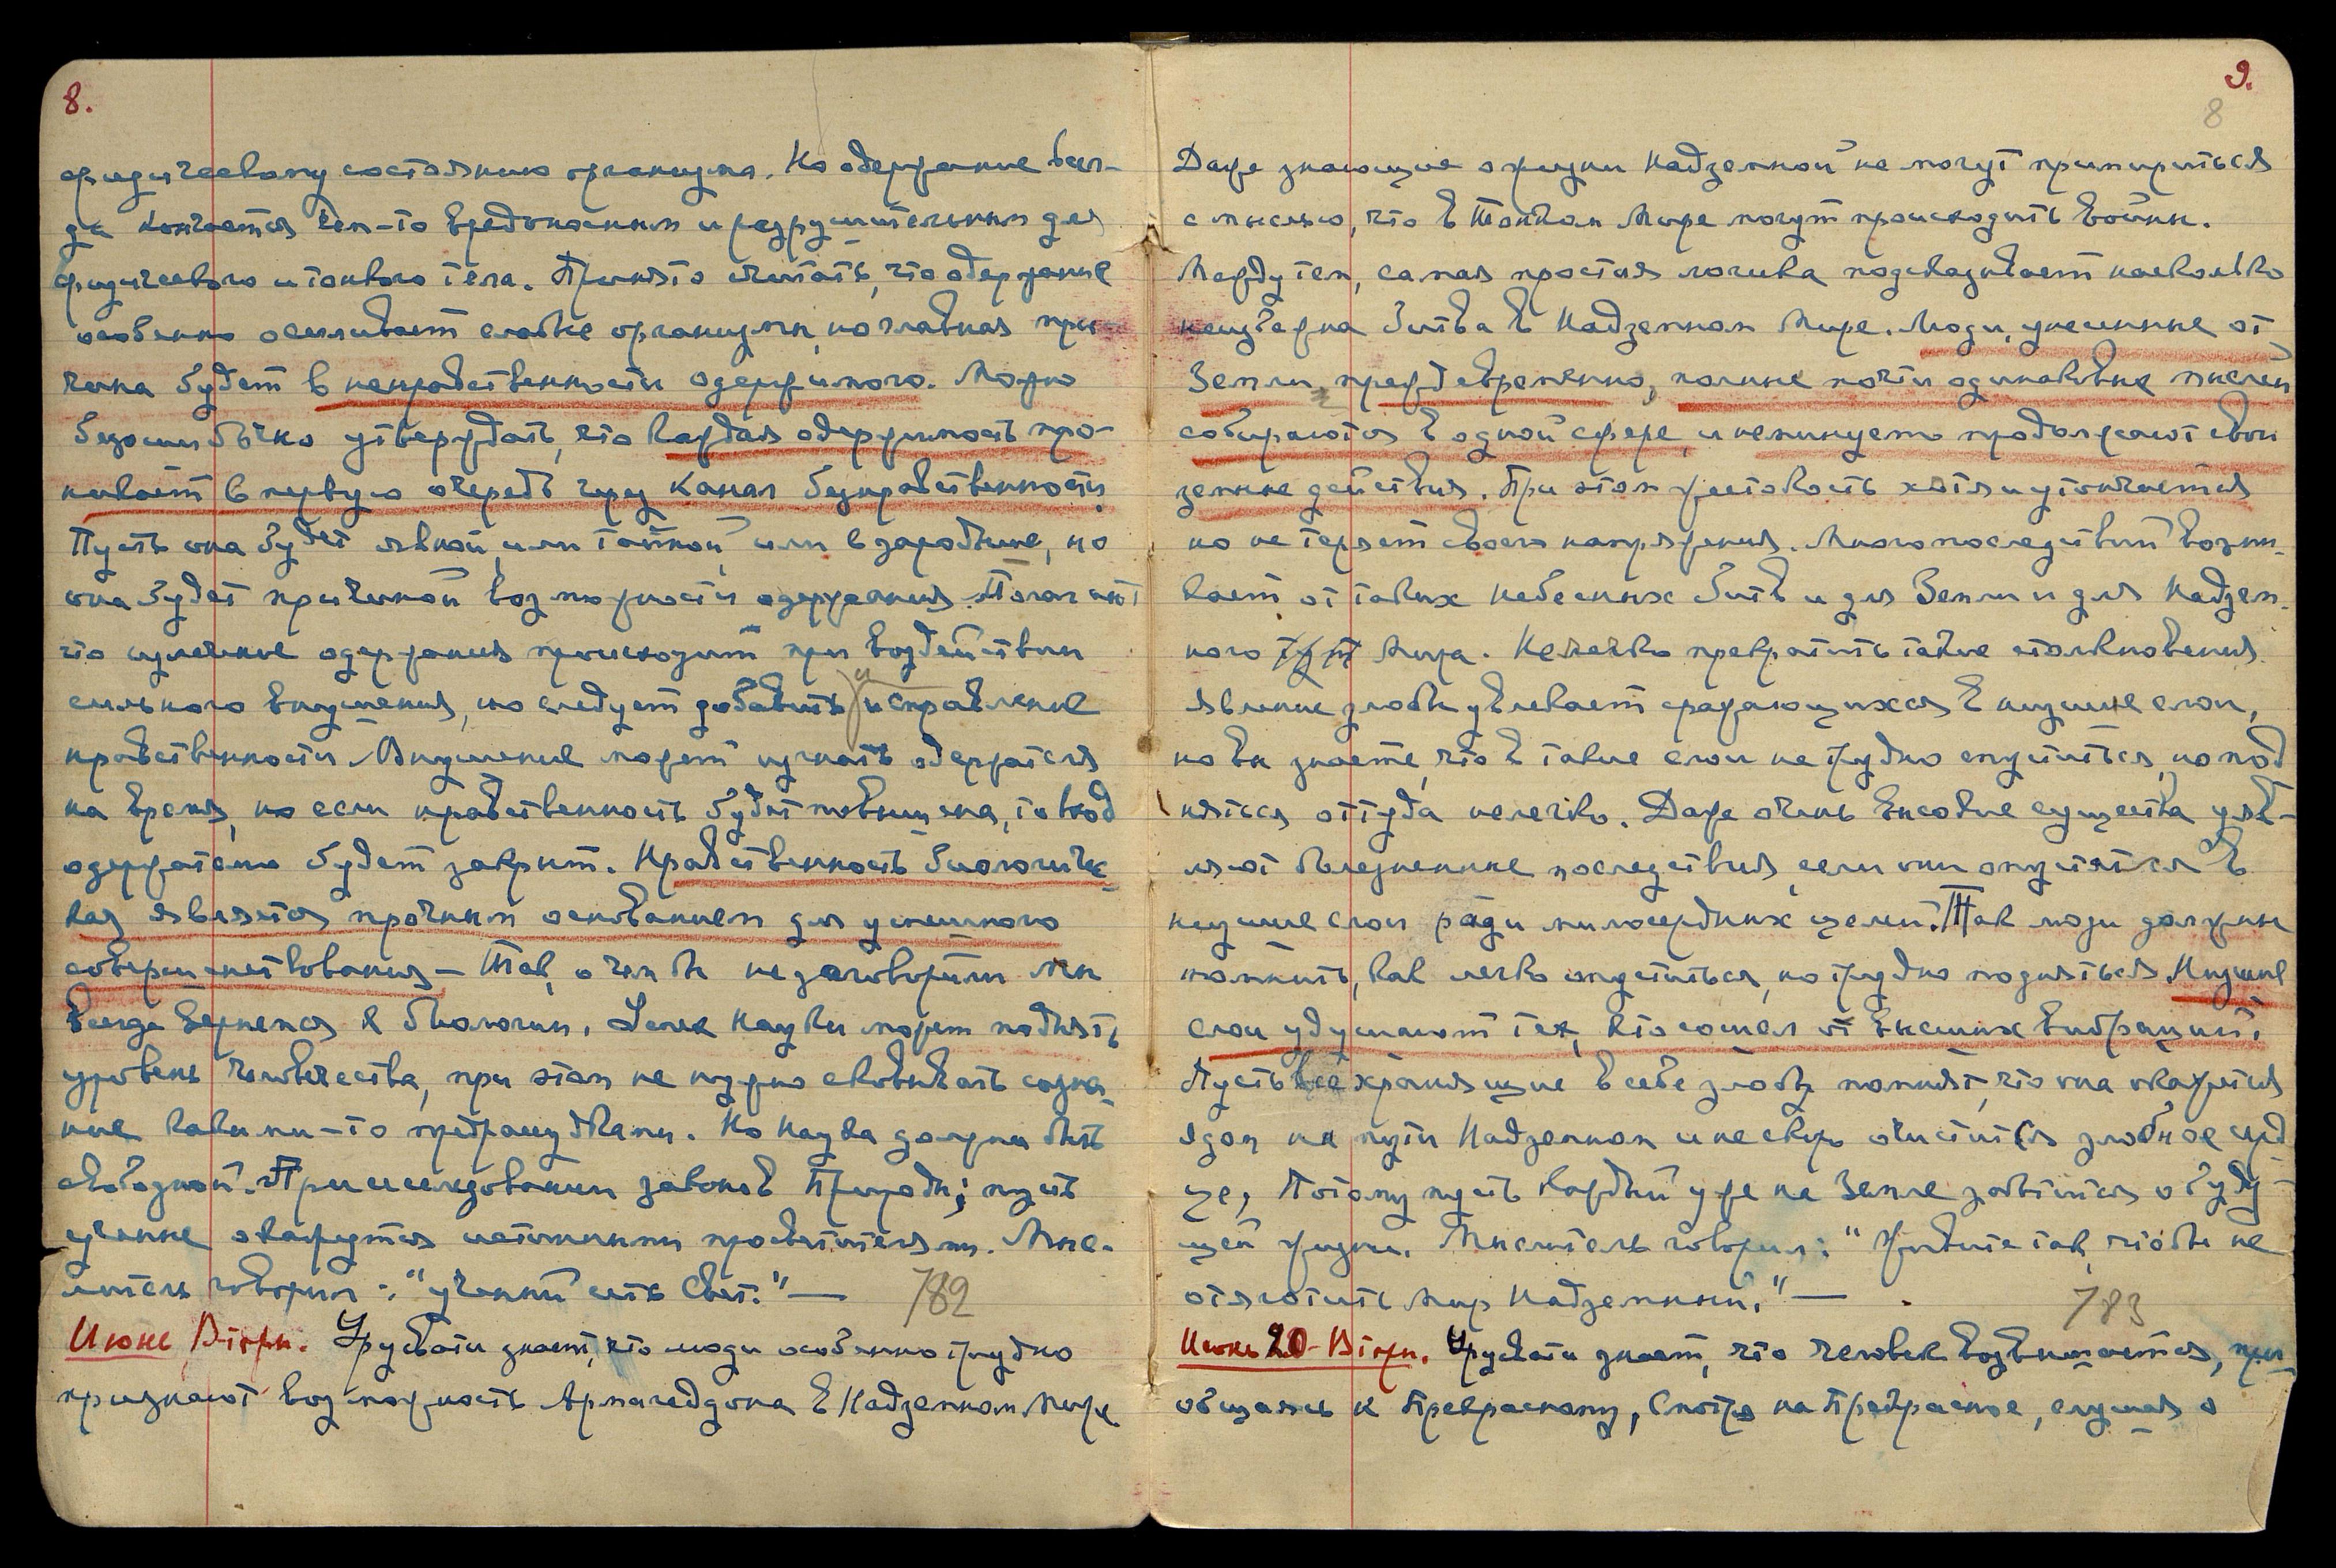 8.
физическому состоянию организма. Но одержание всег-
да кончается чем-то вредоносным и разрушительным для
физического и тонкого тела. Принято считать, что одержание
особенно осиливает слабые организмы, но главная при-
чина будет в ненравственности одержимого. Можно
безошибочно утверждать, что каждая одержимость про-
никает в первую очередь через канал безнравственности.
Пусть она будет явной, или тайной, или в зародыше, но
она будет причиной возможности одержания. Полагают
что излечение одержания происходит при воздействии
сильного внушения, но следует добавить и исправление
нравственности. Внушение может изгнать одержателя
на время, но если нравственность будет повышена, то вход
одержателю будет закрыт. Нравственность биологичес
кая является прочным основанием для успешного
совершенствования — Так, о чем бы не заговорили мы
всегда вернемся к биологии. Успех науки может поднять
уровень человечества, при этом не нужно сковывать созна
ние какими-то предрассудками. Но наука должна быть
свободной. При исследовании законов Природы; пусть
ученые окажутся истинными просветителями. Мыс-
литель говорил: "ученый есть Свет." —
782
Июнь Вторн. Урусвати знает, что люди особенно трудно
признают возможность Армагеддона в Надземном Мире
9.
8
Даже знающие о жизни Надземной не могут примириться
с мыслью, что в Тонком Мире могут происходить войны.
Между тем, самая простая логика подсказывает насколько
неизбежна Битва в Надземном Мире. Люди, унесенные от
Земли преждевременно, полные почти одинаковых мыслей
собираются в одной сфере и неминуемо продолжают свои
земные действия. При этом жестокость хотя и утончается
но не теряет своего напряжения. Много последствий возни-
кает от таких небесных битв и для Земли и для Надзем-
ного Мира. Нелегко прекратить такие столкновения
явление злобы увлекает сражающихся в низшие слои,
но вы знаете, что в такие слои не трудно опуститься, но под
няться оттуда нелегко. Даже очень высокие существа уяв-
ляют болезненные последствия, если они опустятся в
низшие слои ради милосердных целей. Так люди должны
помнить, как легко опуститься, но трудно подняться. Низшие
слои удушают тех, кто сошел от высших вибраций.
Пусть все хранящие в себе злобу помнят, что она окажется
ядом на пути Надземном и не скоро очистится злобное серд
це, Потому пусть каждый уже на Земле заботится о буду-
щей жизни. Мыслитель говорил: "Живите так, чтобы не
отяготить Мир Надземный." —
783
Июнь 20 - Вторн. Урусвати знает, что человек возвышается, при-
общаясь к Прекрасному, Смотря на Прекрасное, слушая о